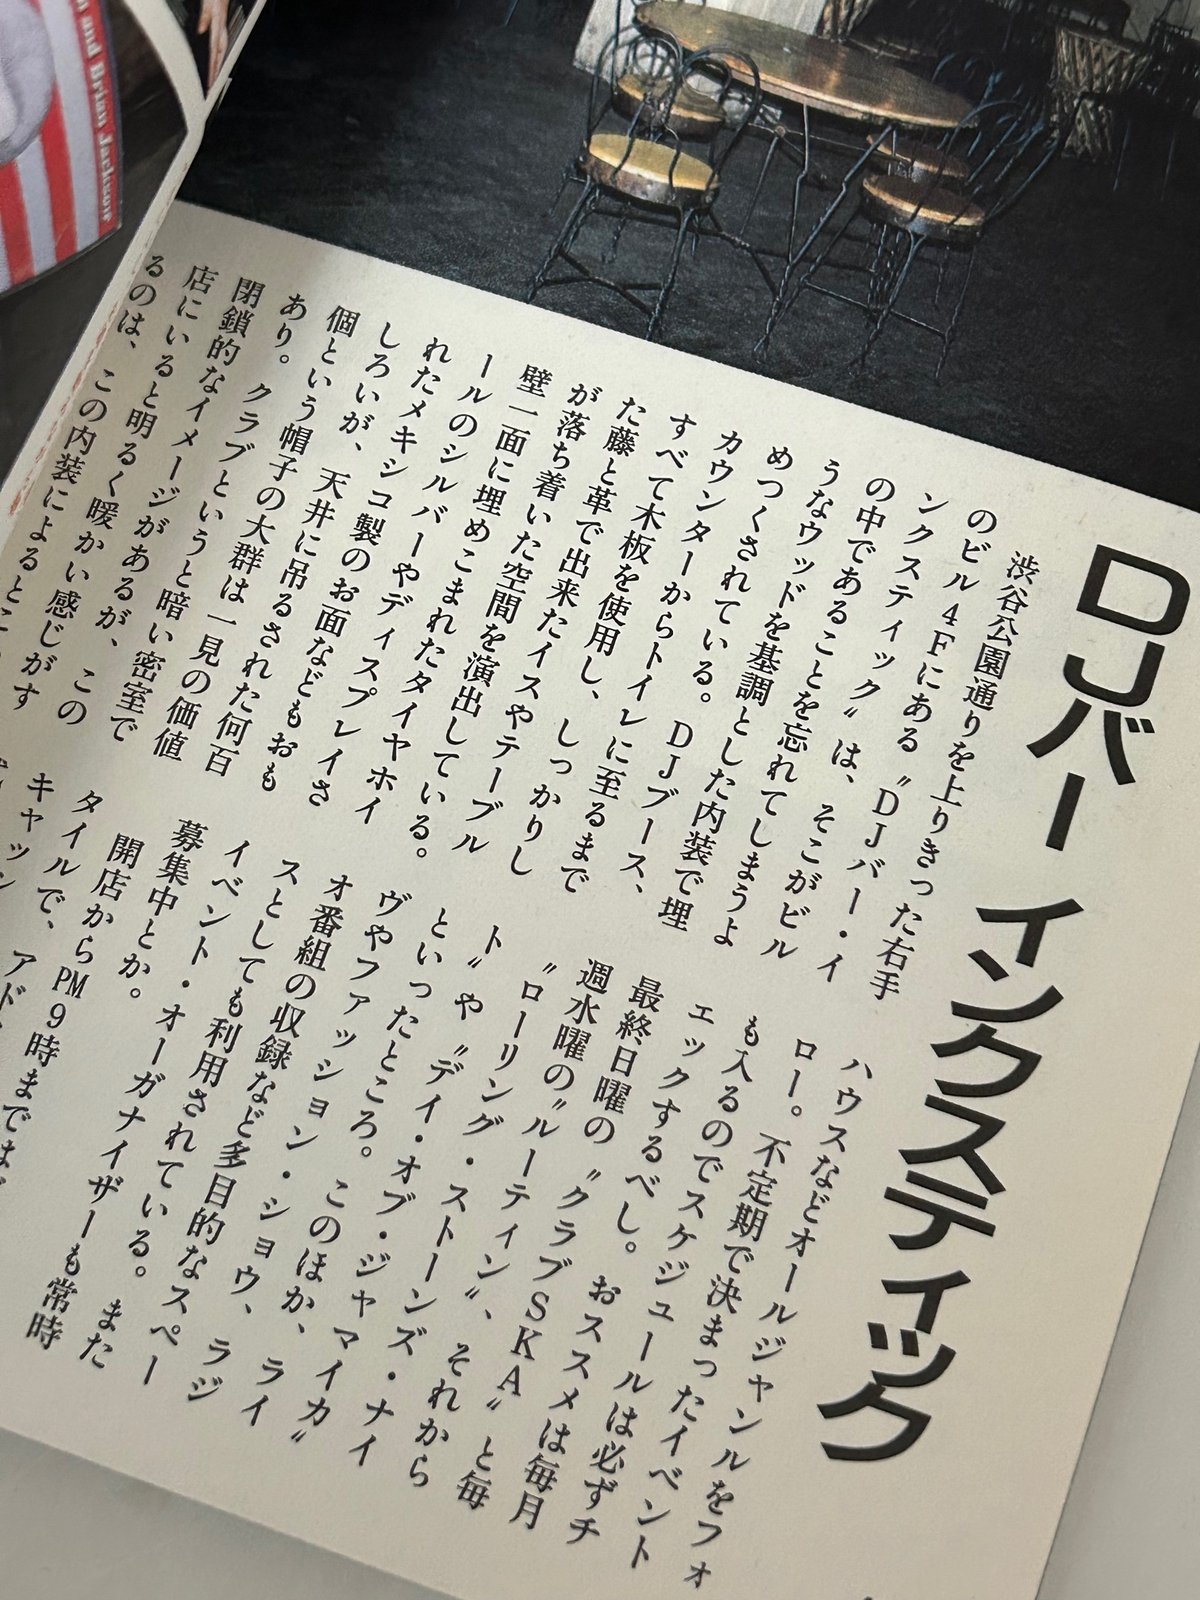 DJバー インクスティック
渋谷公園通りを上りきった右手
のビル4Fにある〝DJバー・イ
ンクスティック〟は、そこがビル
の中であることを忘れてしまうよ
うなウッドを基調とした内装で埋
めつくされている。DJブース、
カウンターからトイレに至るまで
すべて木板を使用し、しっかりし
た藤と革で出来たイスやテーブル
が落ち着いた空間を演出している。
壁一面に埋めこまれたタイヤホイ
ールのシルバーやディスプレイさ
れたメキシコ製のお面などもおも
しろいが、天井に吊るされた何百
個という帽子の大群は一見の価値
あり。クラブというと暗い密室で
閉鎖的なイメージがあるが、この
店にいると明るく暖かい感じがす
るのは、この内装によるとこ
ハウスなどオールジャンルをフォ
ロー。不定期で決まったイベント
も入るのでスケジュールは必ずチ
ェックするべし。おススメは毎月
最終日曜の〝クラブSKA〟と毎
週水曜の〝ルーティン〟、それから
〝ローリング・ストーンズ・ナイ
ト〟や〝デイ・オブ・ジャマイカ〟
といったところ。このほか、ライ
ヴやファッション・ショウ、ラジ
オ番組の収録など多目的なスペー
スとしても利用されている。また
イベント・オーガナイザーも常時
募集中とか。
開店からPM9時までは
タイルで、アド
キャッシ
and Brian Jackson